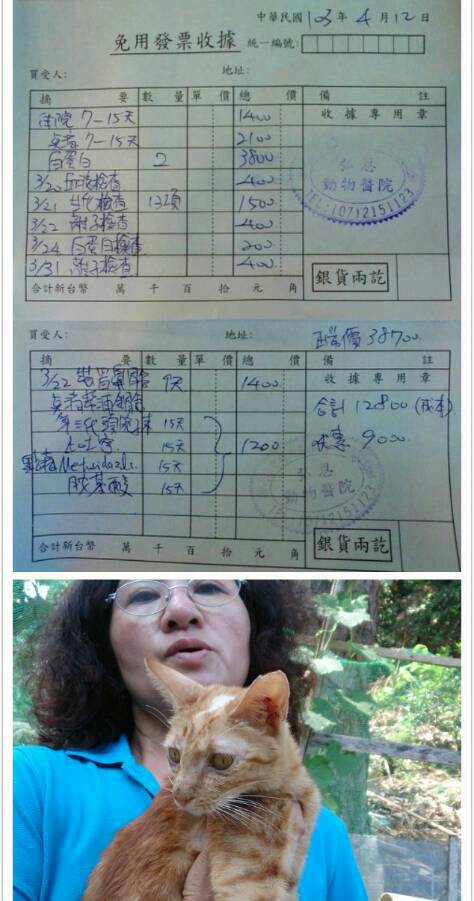 中華民國 103年 4月 12日
免用發票收據 統一編號:
買受人: 地址:
摘 要 數 量 單 價 總 價 備 註
住院 7-15天 1400 收據專用章
7-15天 2100
白蛋白 2 3800
3/20 血液檢查 400
3/21 生化檢查 13項 1500
3/22 離子檢查 400
3/24 白蛋白檢查 200
3/31 離子檢查 400
弘恩
動物醫院
TEL:(07)2151123
銀貨兩訖
合計新台幣 萬 千 百 拾 元 角
買受人: 地址: 價 38700
摘 要 數 量 單 價 總 價 備 註
3/22 裝胃 9天 1400 收據專用章
合計 12800 (成本)
第三代 15天 9000
止吐 15天 1200
15天
胺基酸 15天
弘恩
動物醫院
TEL:(07)2151123
銀貨兩訖
合計新台幣 萬 千 百 拾 元 角